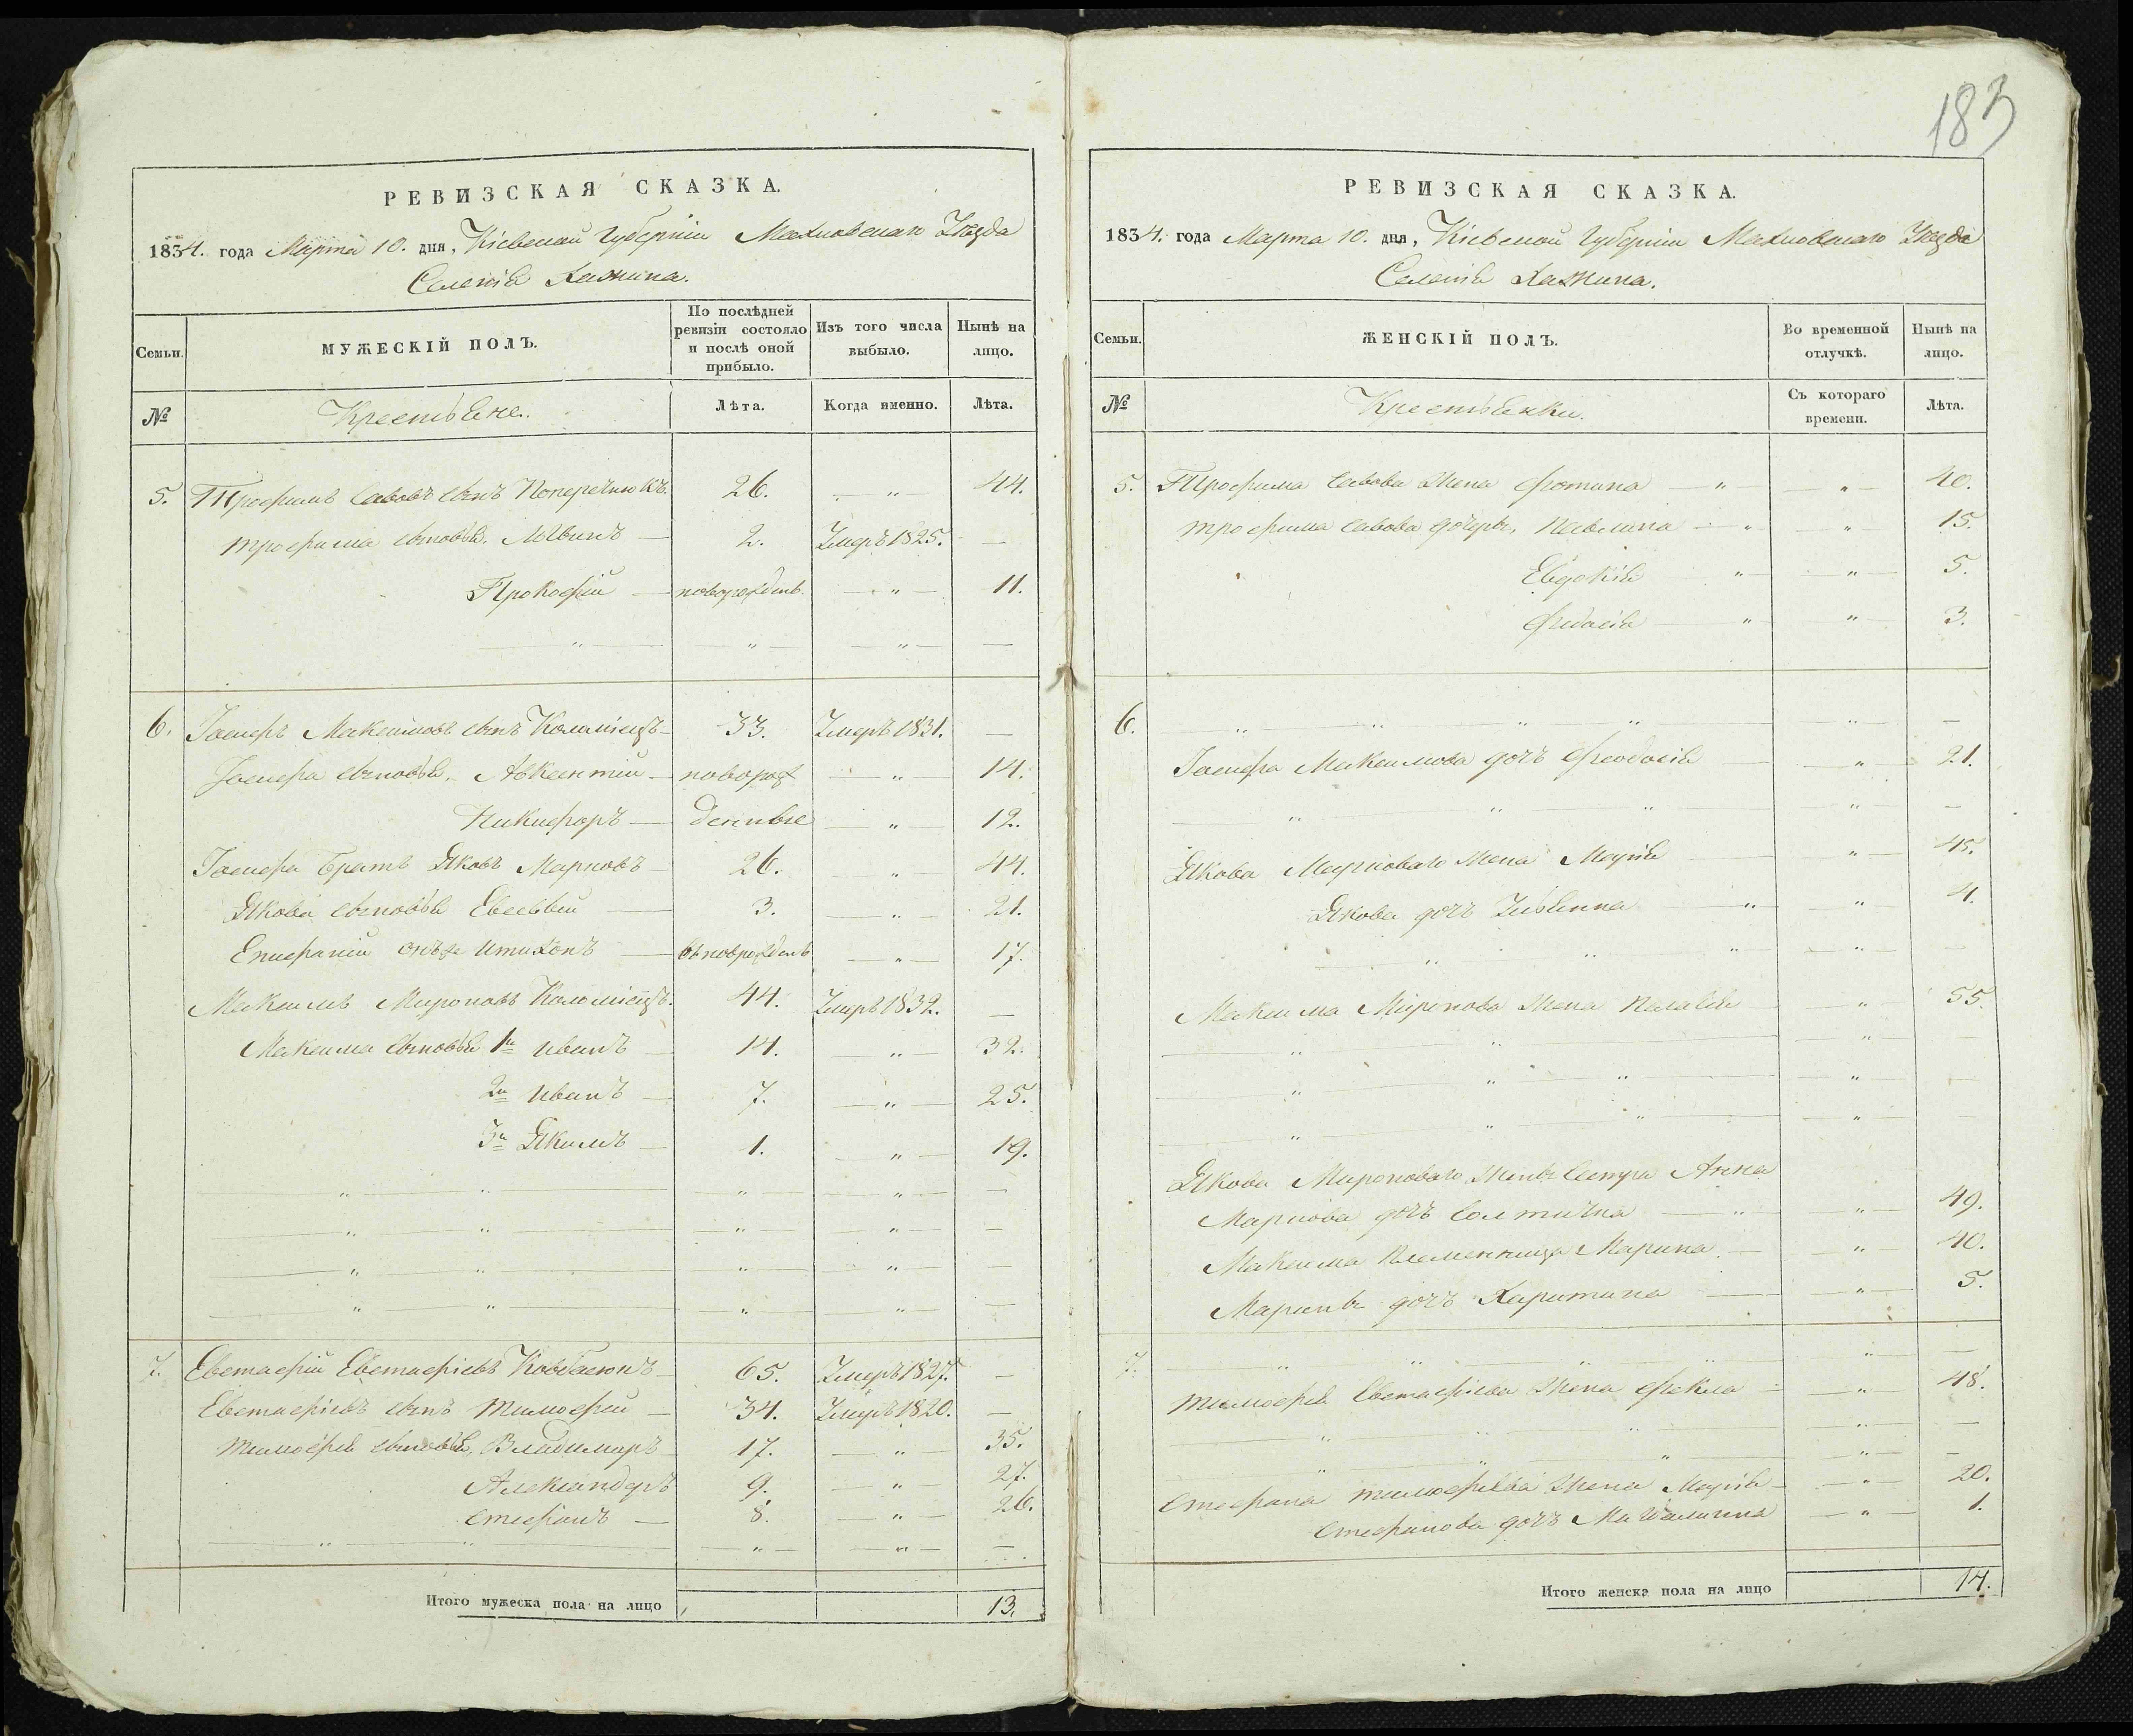 183
РЕВИЗСКАЯ СКАЗКА.
1834. года Марта 10. дня, Кіевской Губерніи Махновскаго Уезда
Селенія Хажина.
Семьи.
МУЖЕСКІЙ ПОЛЪ.
По послѣдней ревизіи состояло и послѣ оной прибыло.
Изъ того числа выбыло.
Нынѣ на лицо.
№
Крестьяне.
Лѣта.
Когда именно.
Лѣта.
5. Трофимъ Савовъ сынъ Поперечнюкъ. 26. — " — 44.
Трофима сыновья, 2. Умеръ 1825. —
Прокофій — новорожденъ. — " — 11.
— " — — " — — " — —
6. Максимовъ сынъ Коломіецъ 33. Умеръ 1831. —
сыновья, Авксентій — новорож — " 14.
Никифоръ — денные — " — 12.
братъ Яковъ Марковъ 26. — " — 44.
Якова сыновья Евсевій — 3. " 21.
Епифаній онъже Итихонъ — новорожденъ — " — 17.
Максимъ Мироновъ Коломіецъ. 44. Умеръ 1832. —
Максима сыновья 1й Иванъ — 14. " — 32.
2й Иванъ — 7. — " — 25.
3й Якимъ — 1. — " — 19.
" " " — — " — —
— " — " — " — — " — —
— " — " — " — — " — —
— " — " — " — — " — —
7. Евстафій Евстафіевъ Ковбасюкъ 65. Умеръ 1827. —
Евстафіевъ сынъ Тимофей — 34. Умеръ 1820. —
Тимофея сыновья, Владимиръ 17. — " — 35.
Александеръ 9. — " — 27.
Стефанъ — 8. — " — 26.
— " — " — — " — — " — —
Итого мужеска пола на лицо 13.
РЕВИЗСКАЯ СКАЗКА.
1834. года Марта 10. дня, Кіевской Губерніи Махновскаго Уезда
Селенія Хажина.
Семьи.
ЖЕНСКІЙ ПОЛЪ.
Во временной отлучкѣ.
Нынѣ на лицо.
№
Крестьянки.
Съ котораго времени.
Лѣта.
5. Трофима Савова жена Фотина — " — — " — 40.
Трофима Савова дочери, Павлина — " — " — 15.
Евдокія " — — " — 5.
Федосія — " — " — 3.
6. " — " — " — " " — —
Максимова дочъ Феодосія — — " — 21.
— " — " — " — — " — —
Якова Марковаго жена Марія — " — 45.
Якова дочъ Ульянна — " — " — 4.
— " — " — " — — " — —
Максима Миронова жена Палагія — " — 55.
" " — " — —
" — " — " — " — —
— " — " — " — — " — —
Якова Мироноваго жены Сестра Анна
Маркова дочъ — " — — " — 49.
Максима племенница Марина — — " — 40.
Марины дочъ Харитина — — " — 5.
7. — " — " — " — " — " — —
Тимофея Евстафіева жена Фекла — " — 48.
— " — " — " — " — —
— " — " — " — — " — —
Стефана Тимофеева жена Марія — — " — 20.
Стефанова дочъ — " — 1.
Итого женска пола на лицо 14.